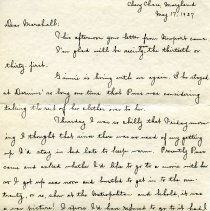 Chevy Chase, Maryland
May 17, 1927
Dear Marshall:
This afternoon your letter from Newport came.
I'm glad will be the thirtieth or
thirty first.
Ginnie is living with us again. She stayed
at so long one time that Pane was considering
taking the rest of her clothes over to her.
Thursday I was so chilly that Friday morn
ing I thought that since there was no need of my getting
up I'd stay in bed late to keep warm. Presently Pane
came and asked whether I'd like to go to a movie with her
so I got up soon and hustled to get in to the
at the Metropolitan and behold, it was
a picture! I refused to go it had I